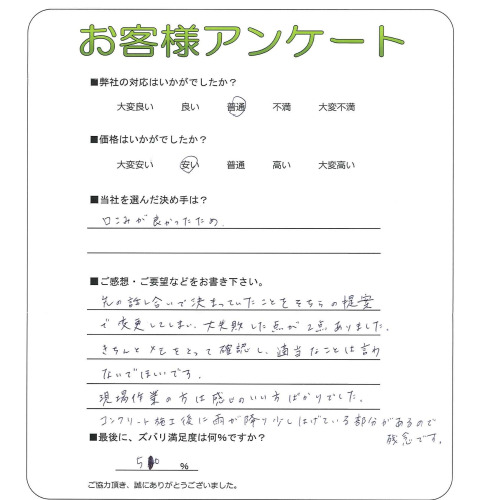 お客様アンケート
■弊社の対応はいかがでしたか？
大変良い 良い 普通 不満 大変不満
■価格はいかがでしたか？
大変安い 安い 普通 高い 大変高い
■当社を選んだ決め手は？
口こみが良かったため.
■ご感想・ご要望などをお書き下さい。
先の話し合いで決まっていたことをそちらの提案
で変更してしまい、大失敗した点が2点ありました.
きちんとメモをとって確認し、適当なことは言わ
ないでほしいです.
現場作業の方は感じのいい方ばかりでした.
コンクリート施工後に雨が降り少しはげている部分があるので
残念です.
■最後に、ズバリ満足度は何％ですか？
50 ％
ご協力頂き、誠にありがとうございました。